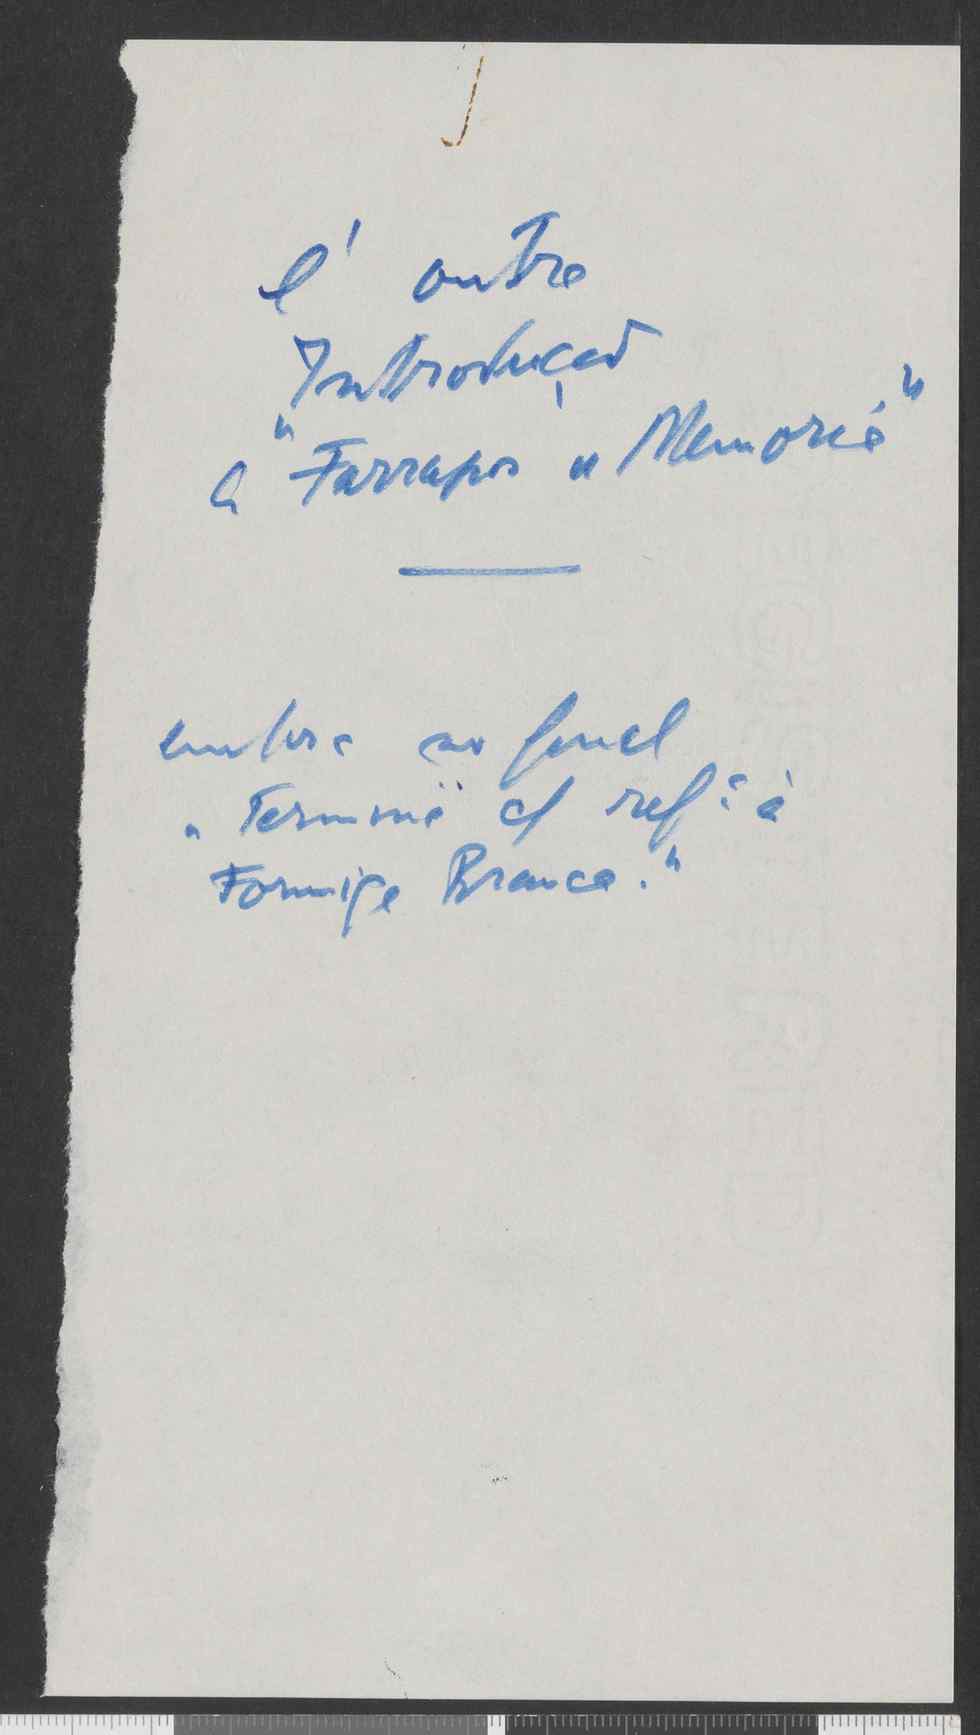 É outra
Introdução
a "Farrapos de Memória"
embora no final
"Termine c/ refª à
Formiga Branca."